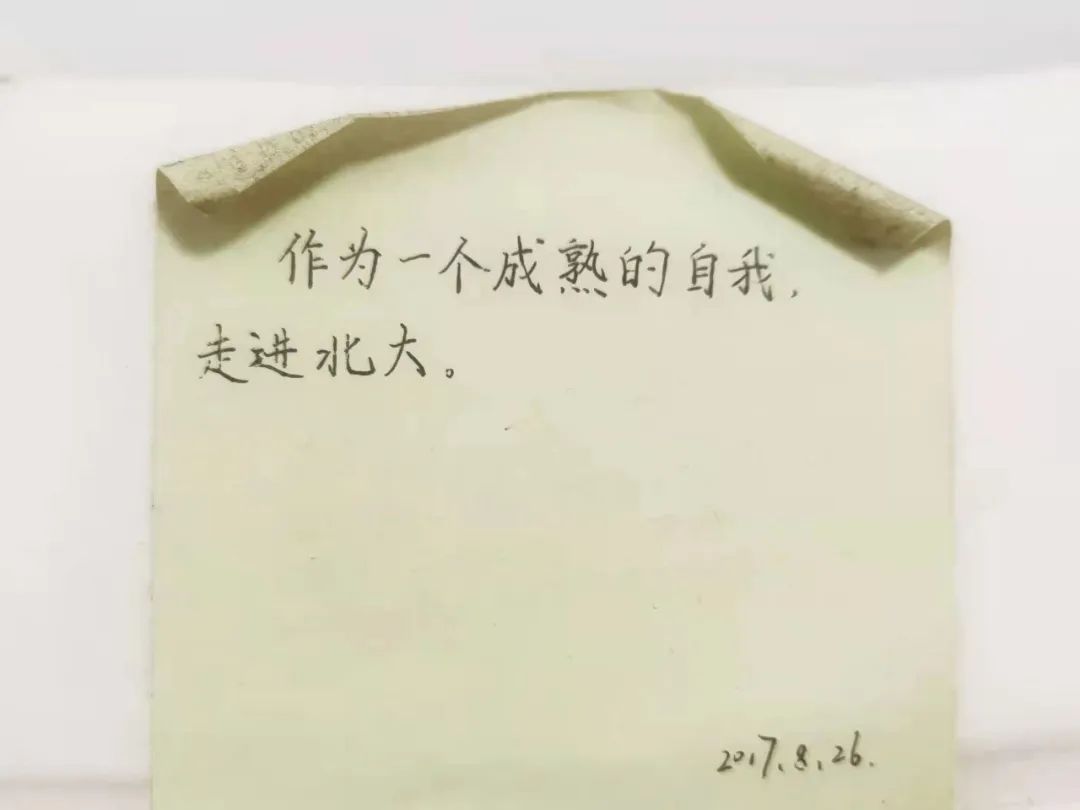 作为一个成熟的自我,
走进北大。
2017.8.26.